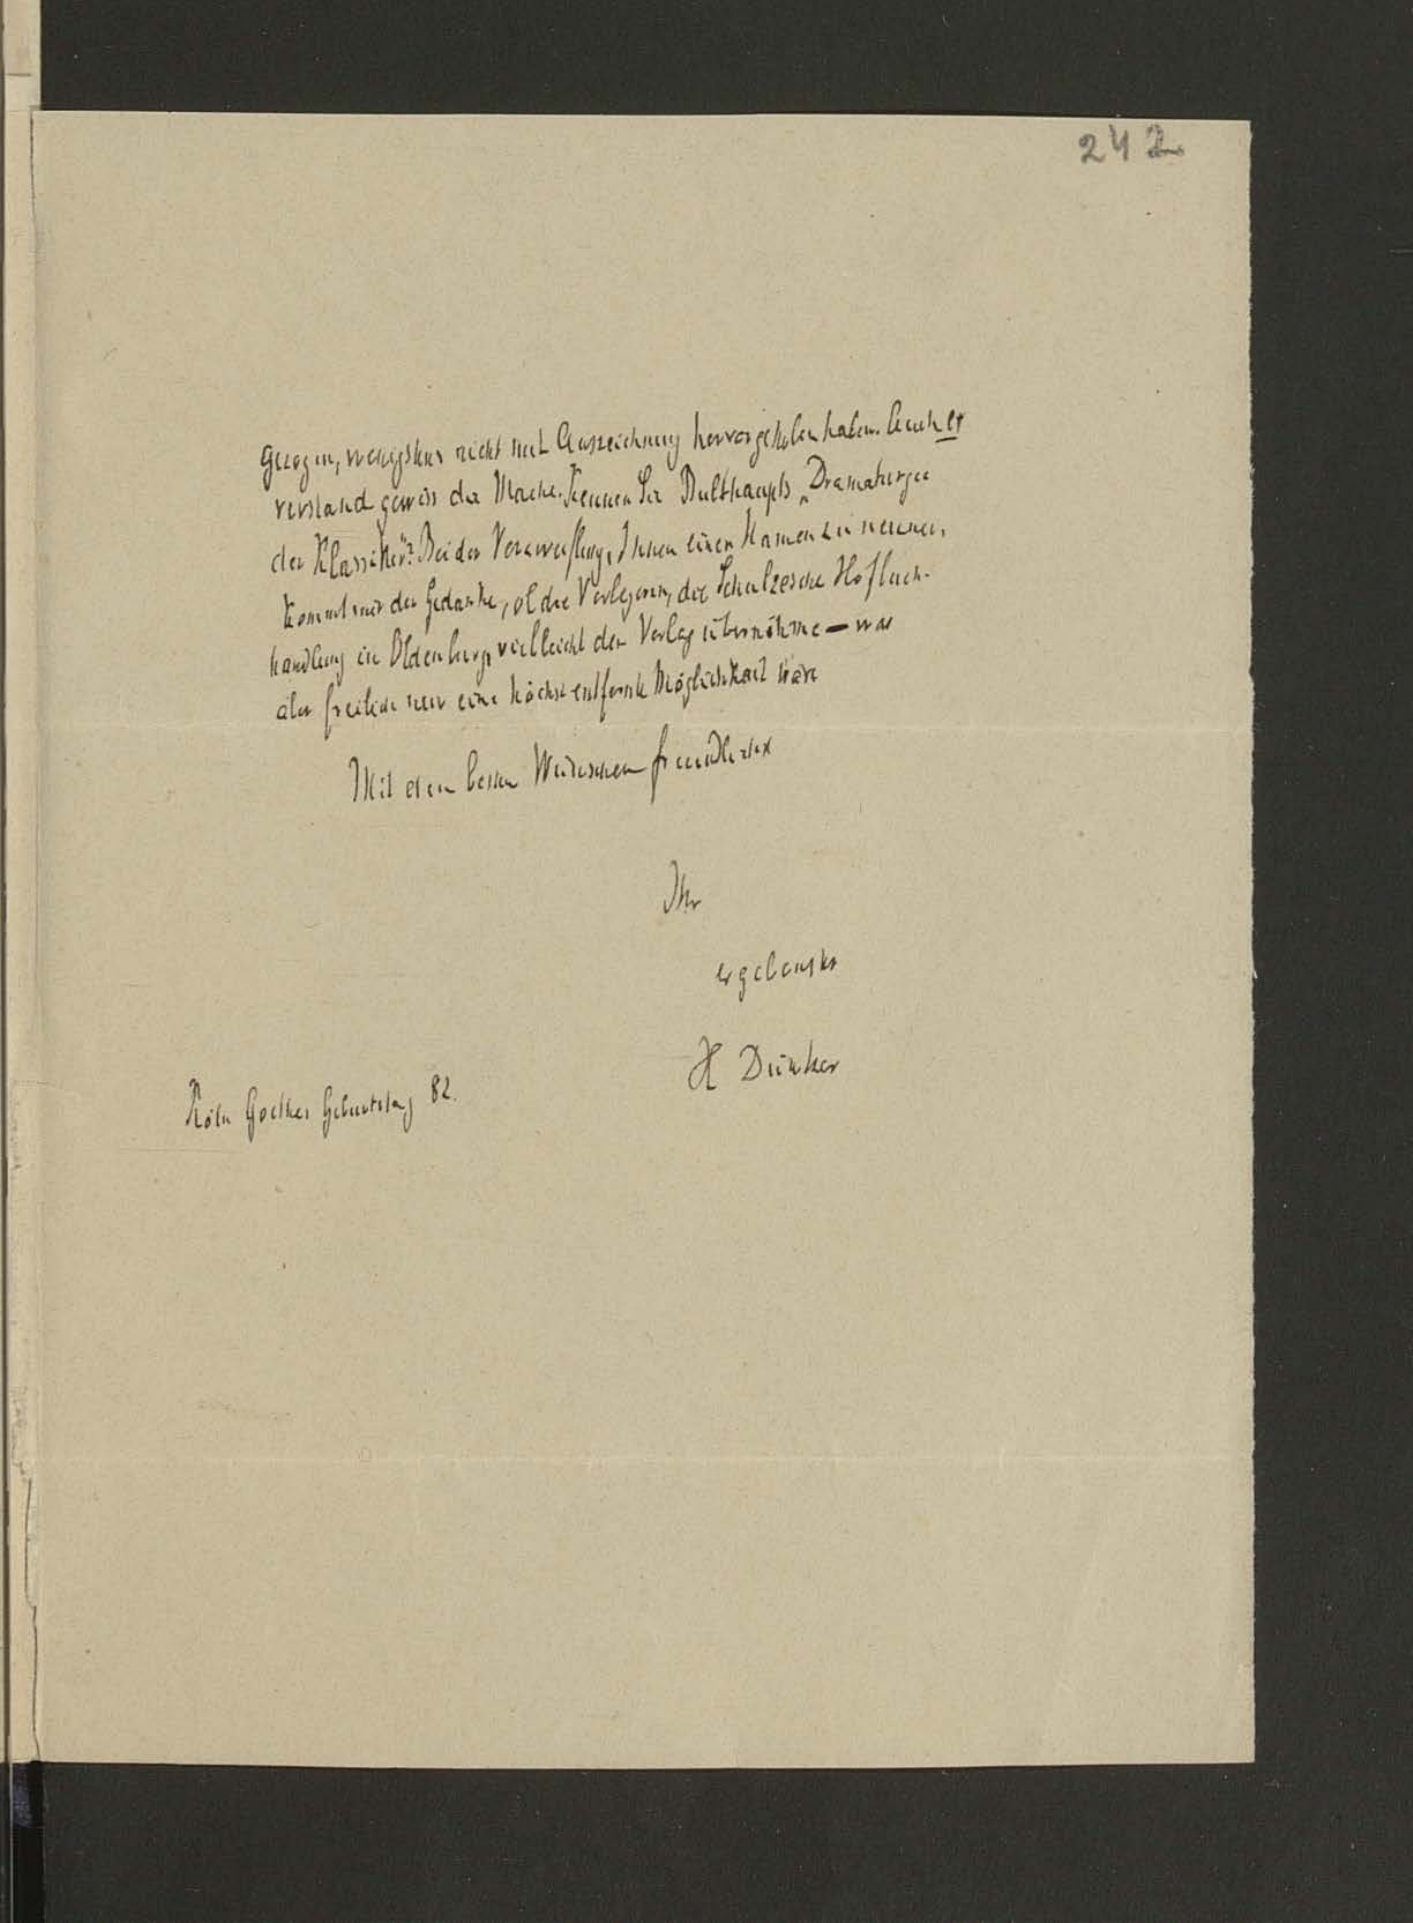 242
gezogen, wenigstens nicht mit Auszeichnung hervorgehoben haben. Auch er
verstand gewiss die Mache. Kennen Sie Bulthaupts „Dramaturgie
der Klassiker"? Bei der Verzweiflung, Ihnen einen Namen zu nennen,
kommt mir der Gedanke, ob die Verlegerin, die Schulzesche Hofbuch-
handlung in Oldenburg, vielleicht den Verlag übernähme – was
aber freilich nur eine höchst entfernte Möglichkeit wäre
Mit den besten Wünschen freundlichst
Ihr
ergebenster
H Düntzer
Köln Goethes Geburtstag 82.